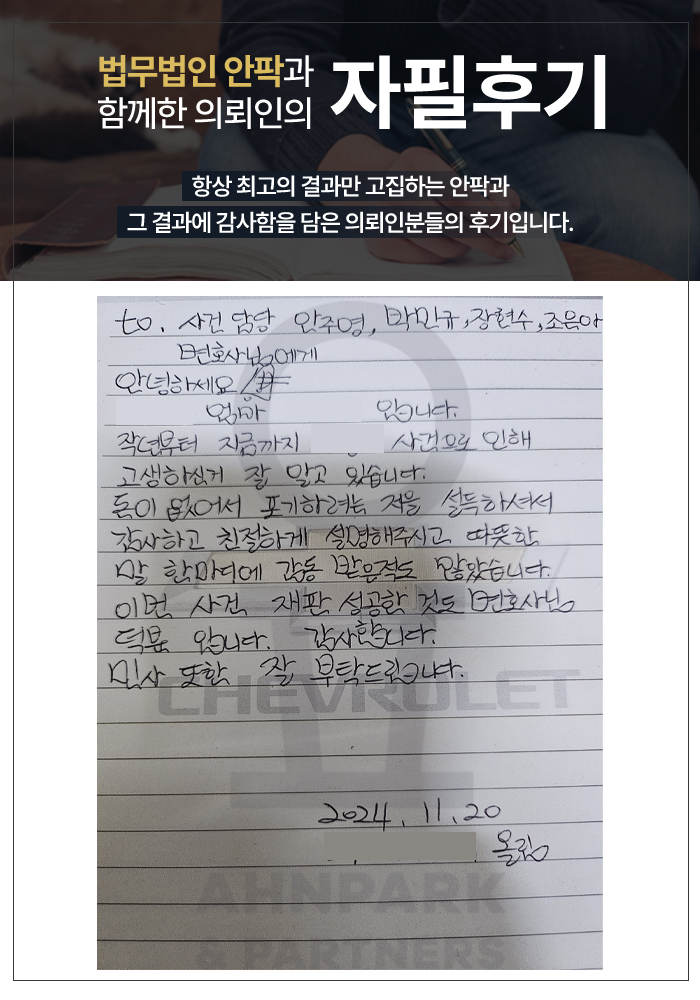 법무법인 안팍과
함께한 의뢰인의
자필후기
항상 최고의 결과만 고집하는 안팍과
그 결과에 감사함을 담은 의뢰인분들의 후기입니다.
to. 사건 담당 안주영, 박민규, 장현수, 조음아
변호사님에게
안녕하세요
엄마 입니다.
작년부터 지금까지 사건으로 인해
고생하신거 잘 알고 있습니다.
돈이 없어서 포기하려는 저를 설득하셔서
감사하고 친절하게 설명해주시고 따뜻한
말 한마디에 감동 받은적도 많았습니다.
이번 사건 재판 성공한 것도 변호사님
덕분 입니다. 감사합니다.
민사 또한 잘 부탁드립니다.
CHEVROLET
2024. 11. 20
올림
AHNPARK
& PARTNERS